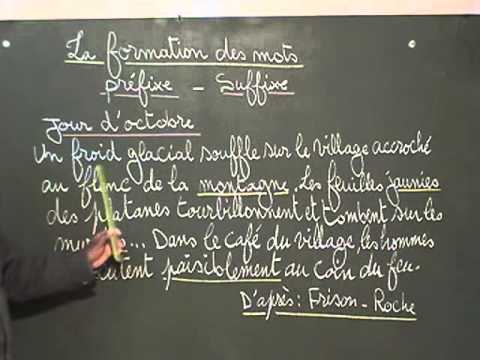 La formation des mots
préfixe - Suffixe
Jour d'octobre
Un froid glacial souffle sur le village accroché
au flanc de la montagne. Les feuilles jaunies
des platanes tourbillonnent et tombent sur les
... Dans le café du village, les hommes
paisiblement au coin du feu.
D'après : Frison - Roche